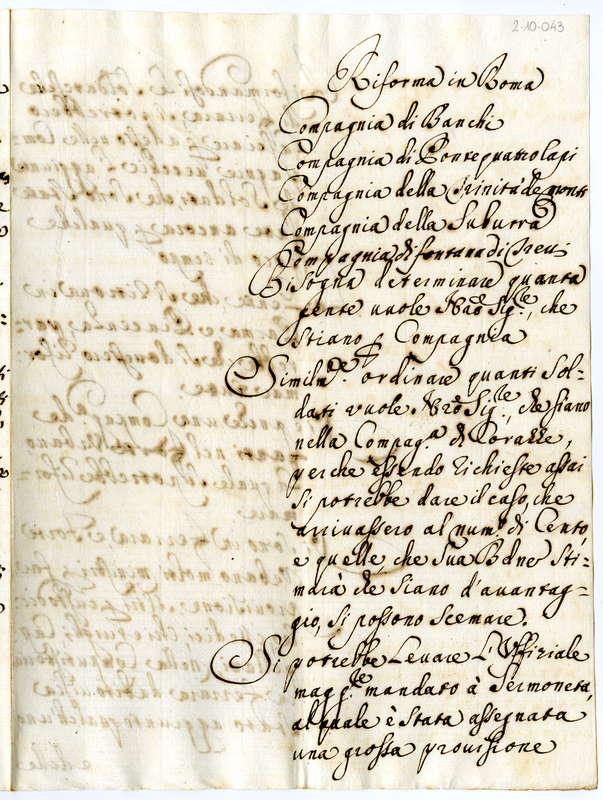 2-10-043
Riforma in Roma
Compagnia di Banchi
Compagnia di Ponte quattro Capi
Compagnia della Trinità de monti
Compagnia della Suburra
Compagnia di fontana di Trevi
Bisogna determinare quanta
gente vuole Nro Sig.re, che
stiano p Compagnia
Similmte. ordinare quanti Sol=
dati vuole Nro Sig.re, che siano
nella Compag.a di Corazze,
perche essendo richieste assai
si potrebbe dare il caso, che
arrivassero al num.o di Cento,
e quelle, che Sua Bdne sti=
marà che siano d'avantag=
gio, si possono scemare.
Si potrebbe Levare L'Uffiziale
magg.re mandato à Sermoneta,
al quale è stata assegnata
una grossa provisione